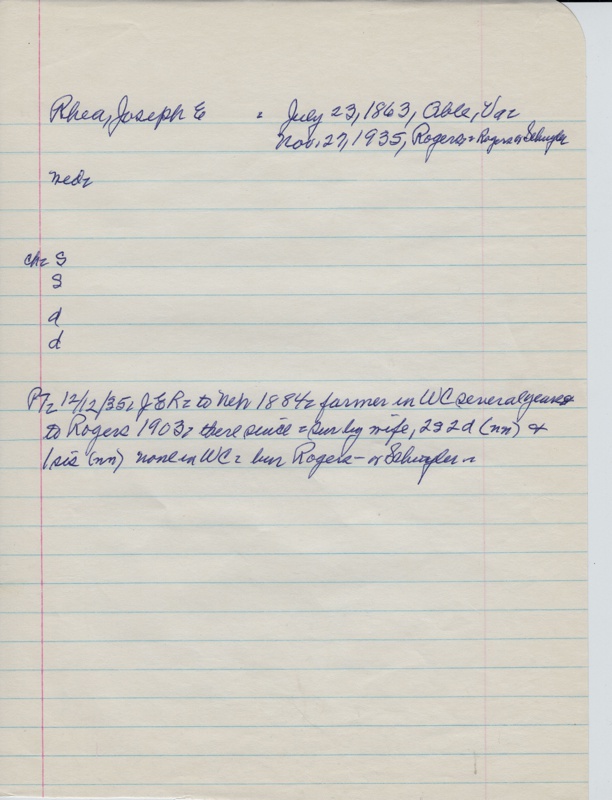 Rhea, Joseph E = July 23, 1863, Able, Va=
Nov. 27, 1935, Rogers = Rogers or Schuyler
ch= S
S
d
d
12/12/35= JER= to Neb 1884= farmer in WC several years
to Rogers 1903= there since = sur by wife, 2s 2d (nn) +
1 sis (nn) none in WC= bur Rogers - or Schuyler =